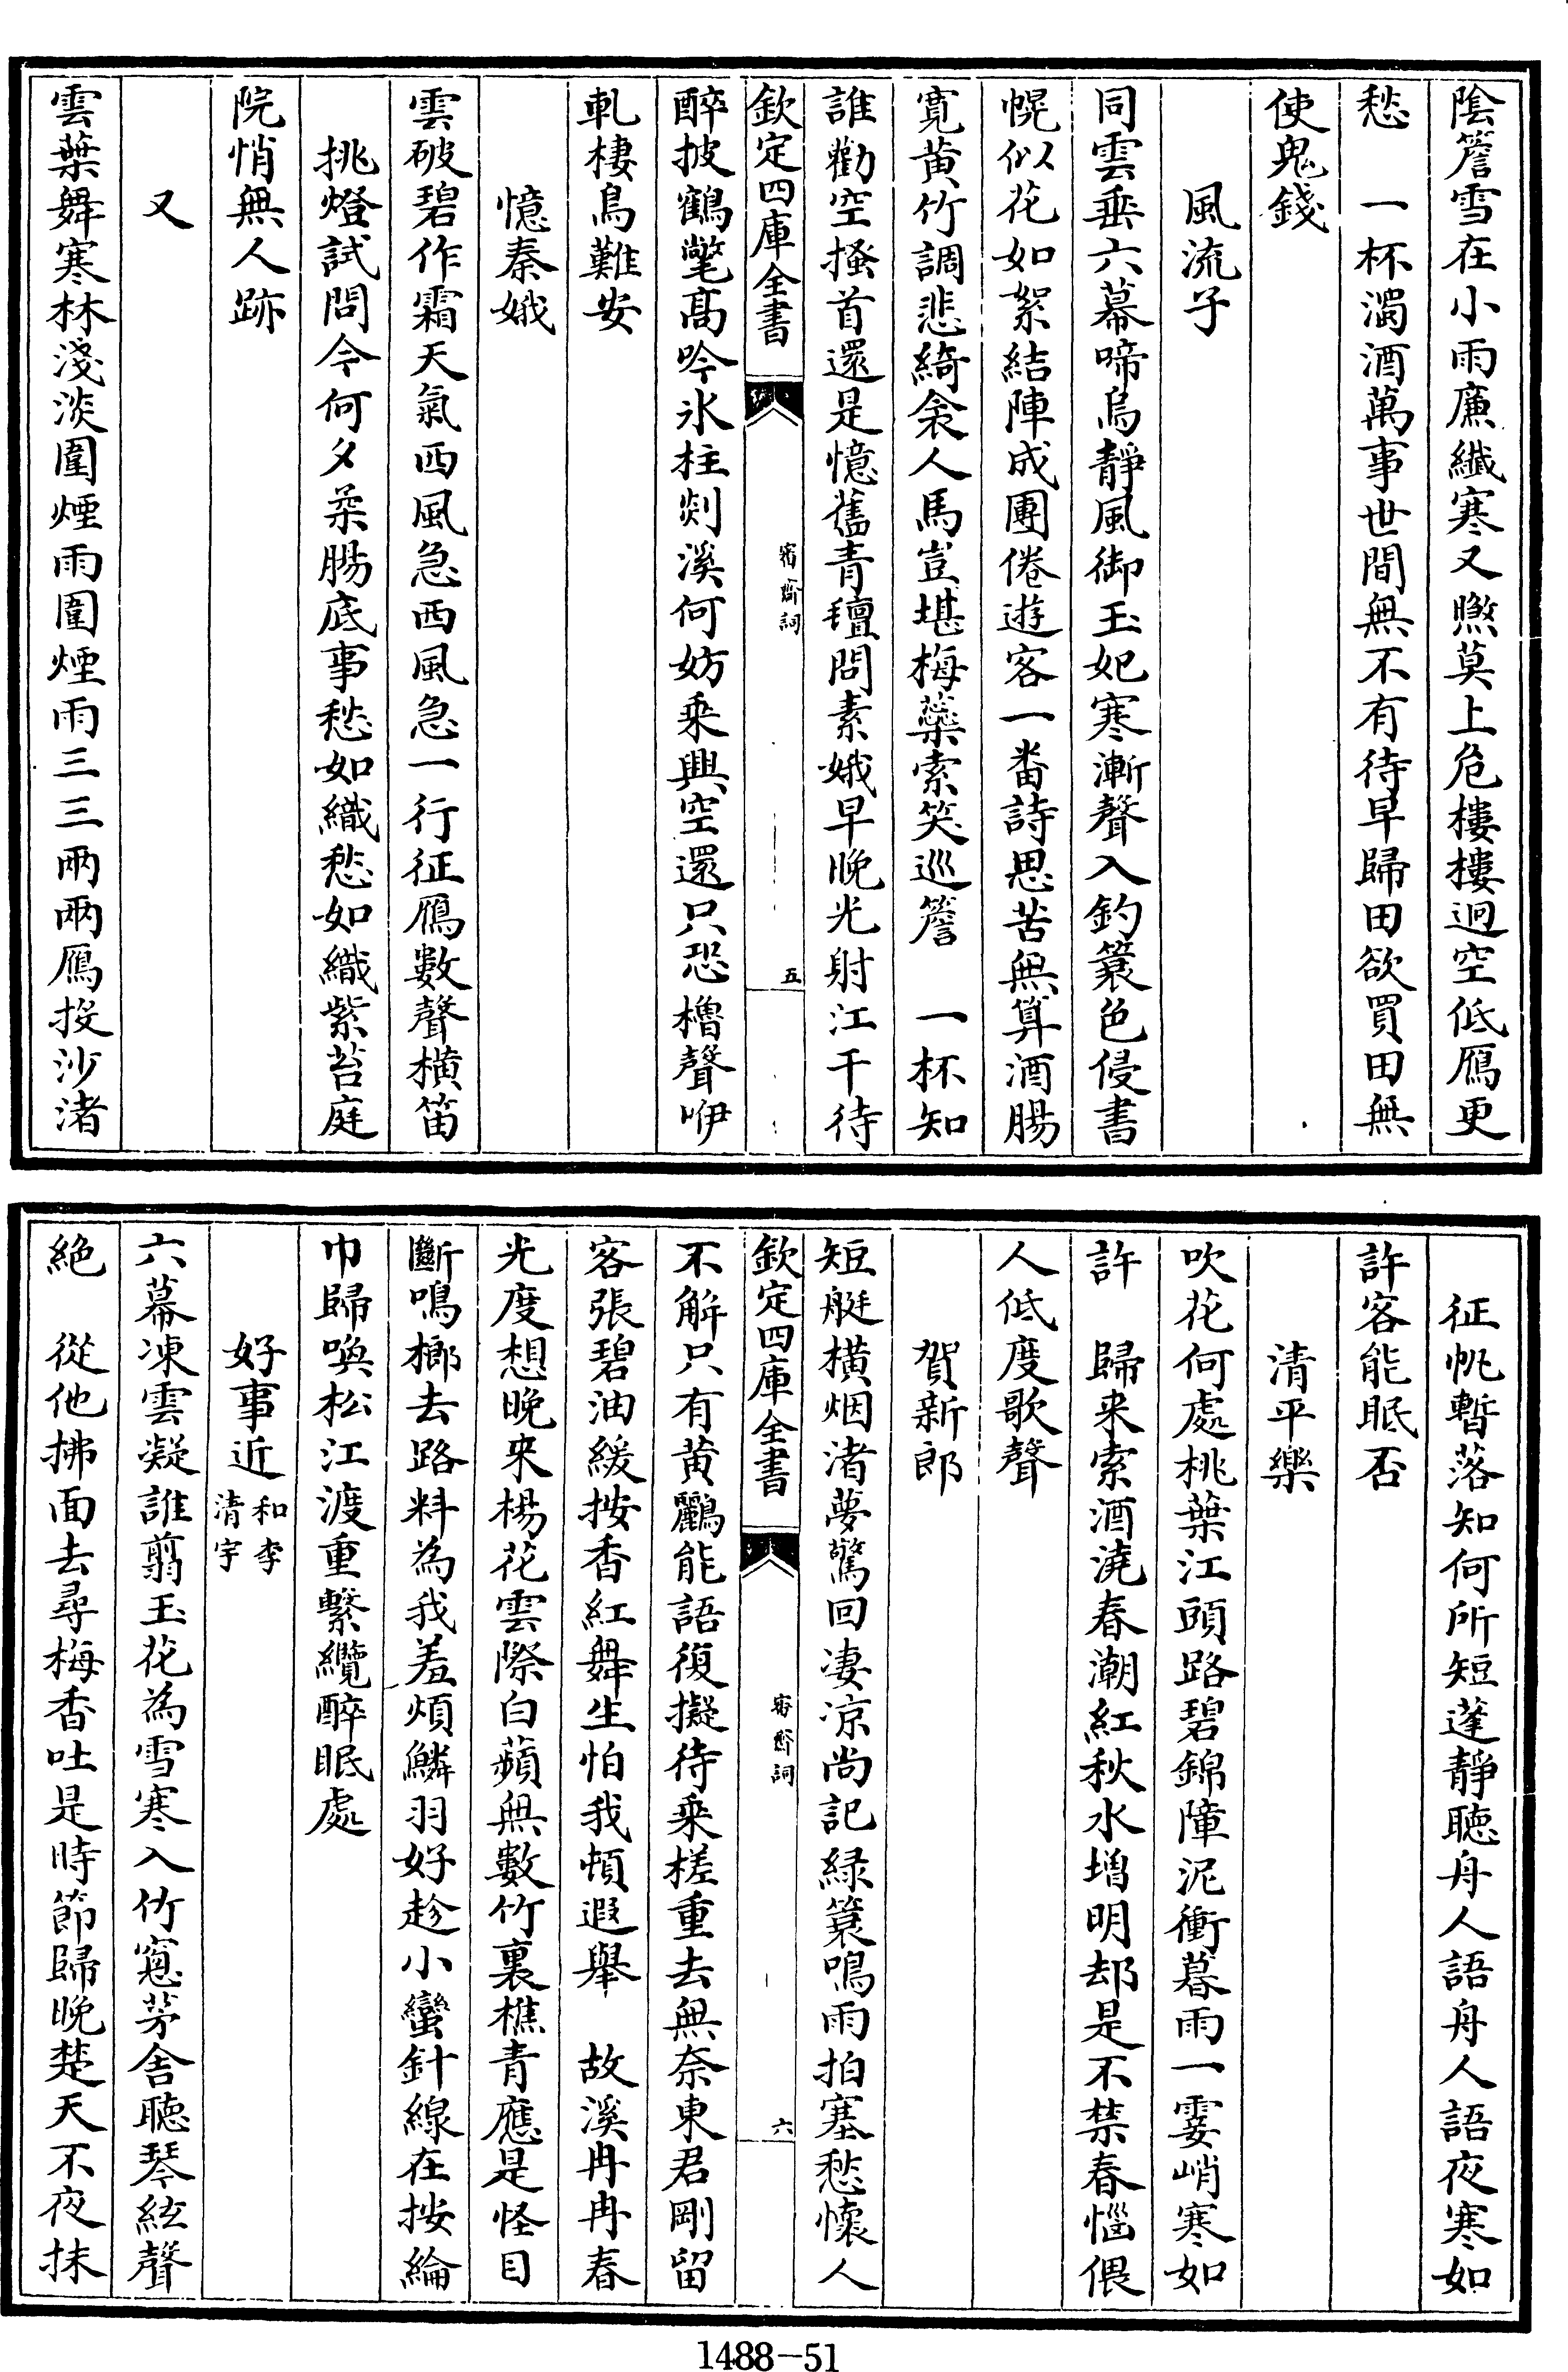 陰簷雪在小雨廉纖寒又煞莫上危樓樓迥空低鴈更
愁　一杯濁酒萬事世間無不有待早歸田欲買田無
使鬼錢
風流子
同雲垂六幕啼烏靜風御玉妃寒漸聲入釣簑色侵書
幌似花如絮結陣成團倦遊客一番詩思苦無算酒腸
寛黄竹調悲綺衾人馬豈堪梅蘂索笑巡簷　一杯知
誰勸空搔首還是憶舊青氊問素娥早晚光射江干待
欽定四庫全書
審齋詞
五
醉披鶴氅髙吟氷柱剡溪何妨乘興空還只恐櫓聲咿
軋棲鳥難安
憶秦娥
雲破碧作霜天氣西風急西風急一行征鴈數聲橫笛
挑燈試問今何夕柔腸底事愁如織愁如織紫苔庭
院悄無人跡
又
雲葉舞寒林淺淡圍煙雨圍煙雨三三兩兩鴈投沙渚
征帆暫落知何所短蓬靜聽舟人語舟人語夜寒如
許客能眠否
清平樂
吹花何處桃葉江頭路碧錦障泥衝暮雨一霎峭寒如
許　歸来索酒澆春潮紅秋水增明却是不禁春惱偎
人低度歌聲
賀新郎
短艇橫烟渚夢驚回凄凉尚記緑簑鳴雨拍塞愁懷人
欽定四庫全書
審齋詞
六
不解只有黄鸝能語復擬待乘槎重去無奈東君剛留
客張碧油緩按香紅舞生怕我頓遐舉　故溪冉冉春
光度想晚來楊花雲際白蘋無數竹裏樵青應是怪目
斷鳴榔去路料為我羞煩鱗羽好趁小蠻針線在按綸
巾歸喚松江渡重繫纜醉眠處
好事近和李清宇
六幕凍雲凝誰翦玉花為雪寒入竹窻茅舍聽琴絃聲
絶　從他拂面去尋梅香吐是時節歸晚楚天不夜抹
1488-51